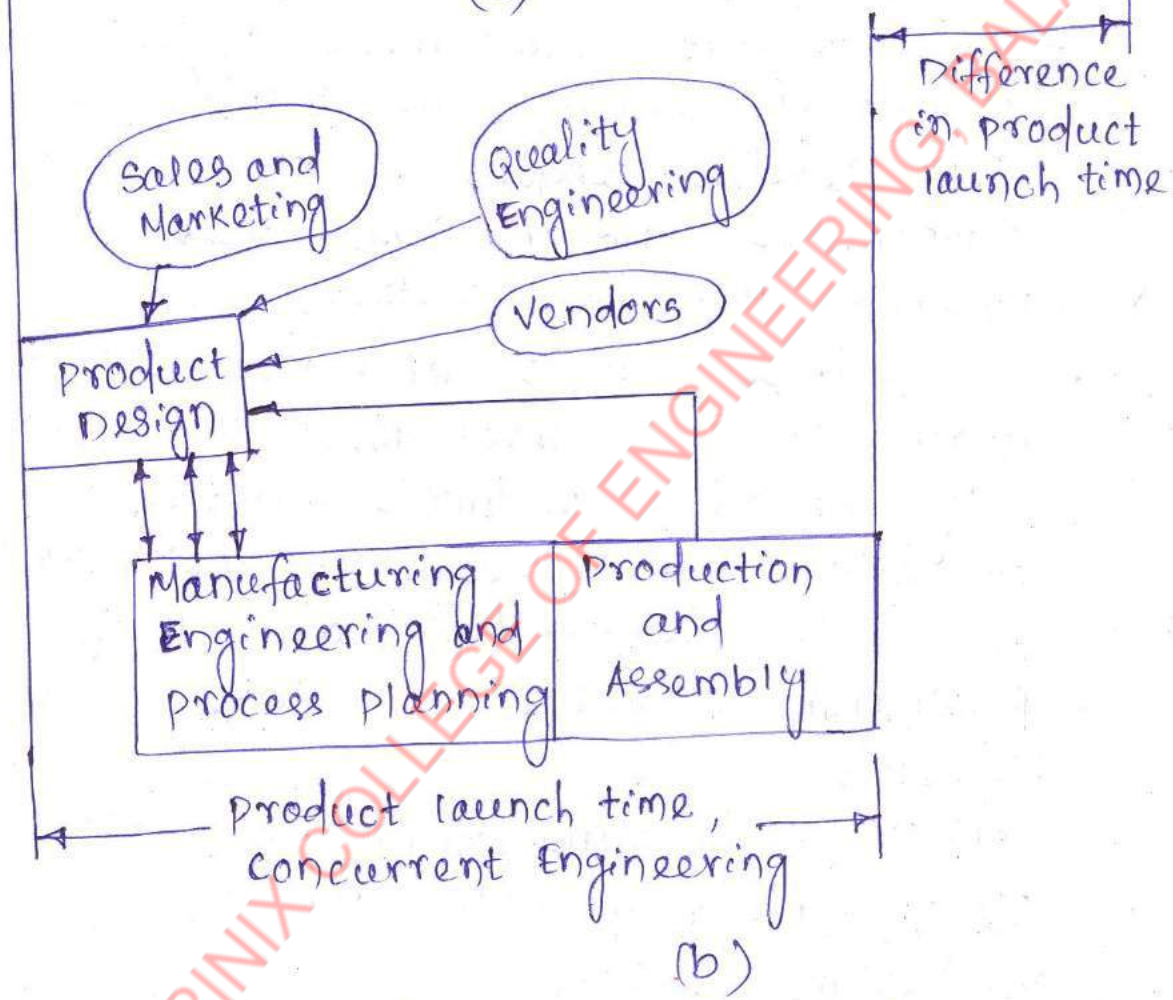 Difference
in product
launch time
Sales and
Marketing
Quality
Engineering
Vendors
Product
Design
Manufacturing
Engineering and
Process planning
Production
and
Assembly
Product launch time,
Concurrent Engineering
(b)
RINIX COLLEGE OF ENGINEERING, BALA